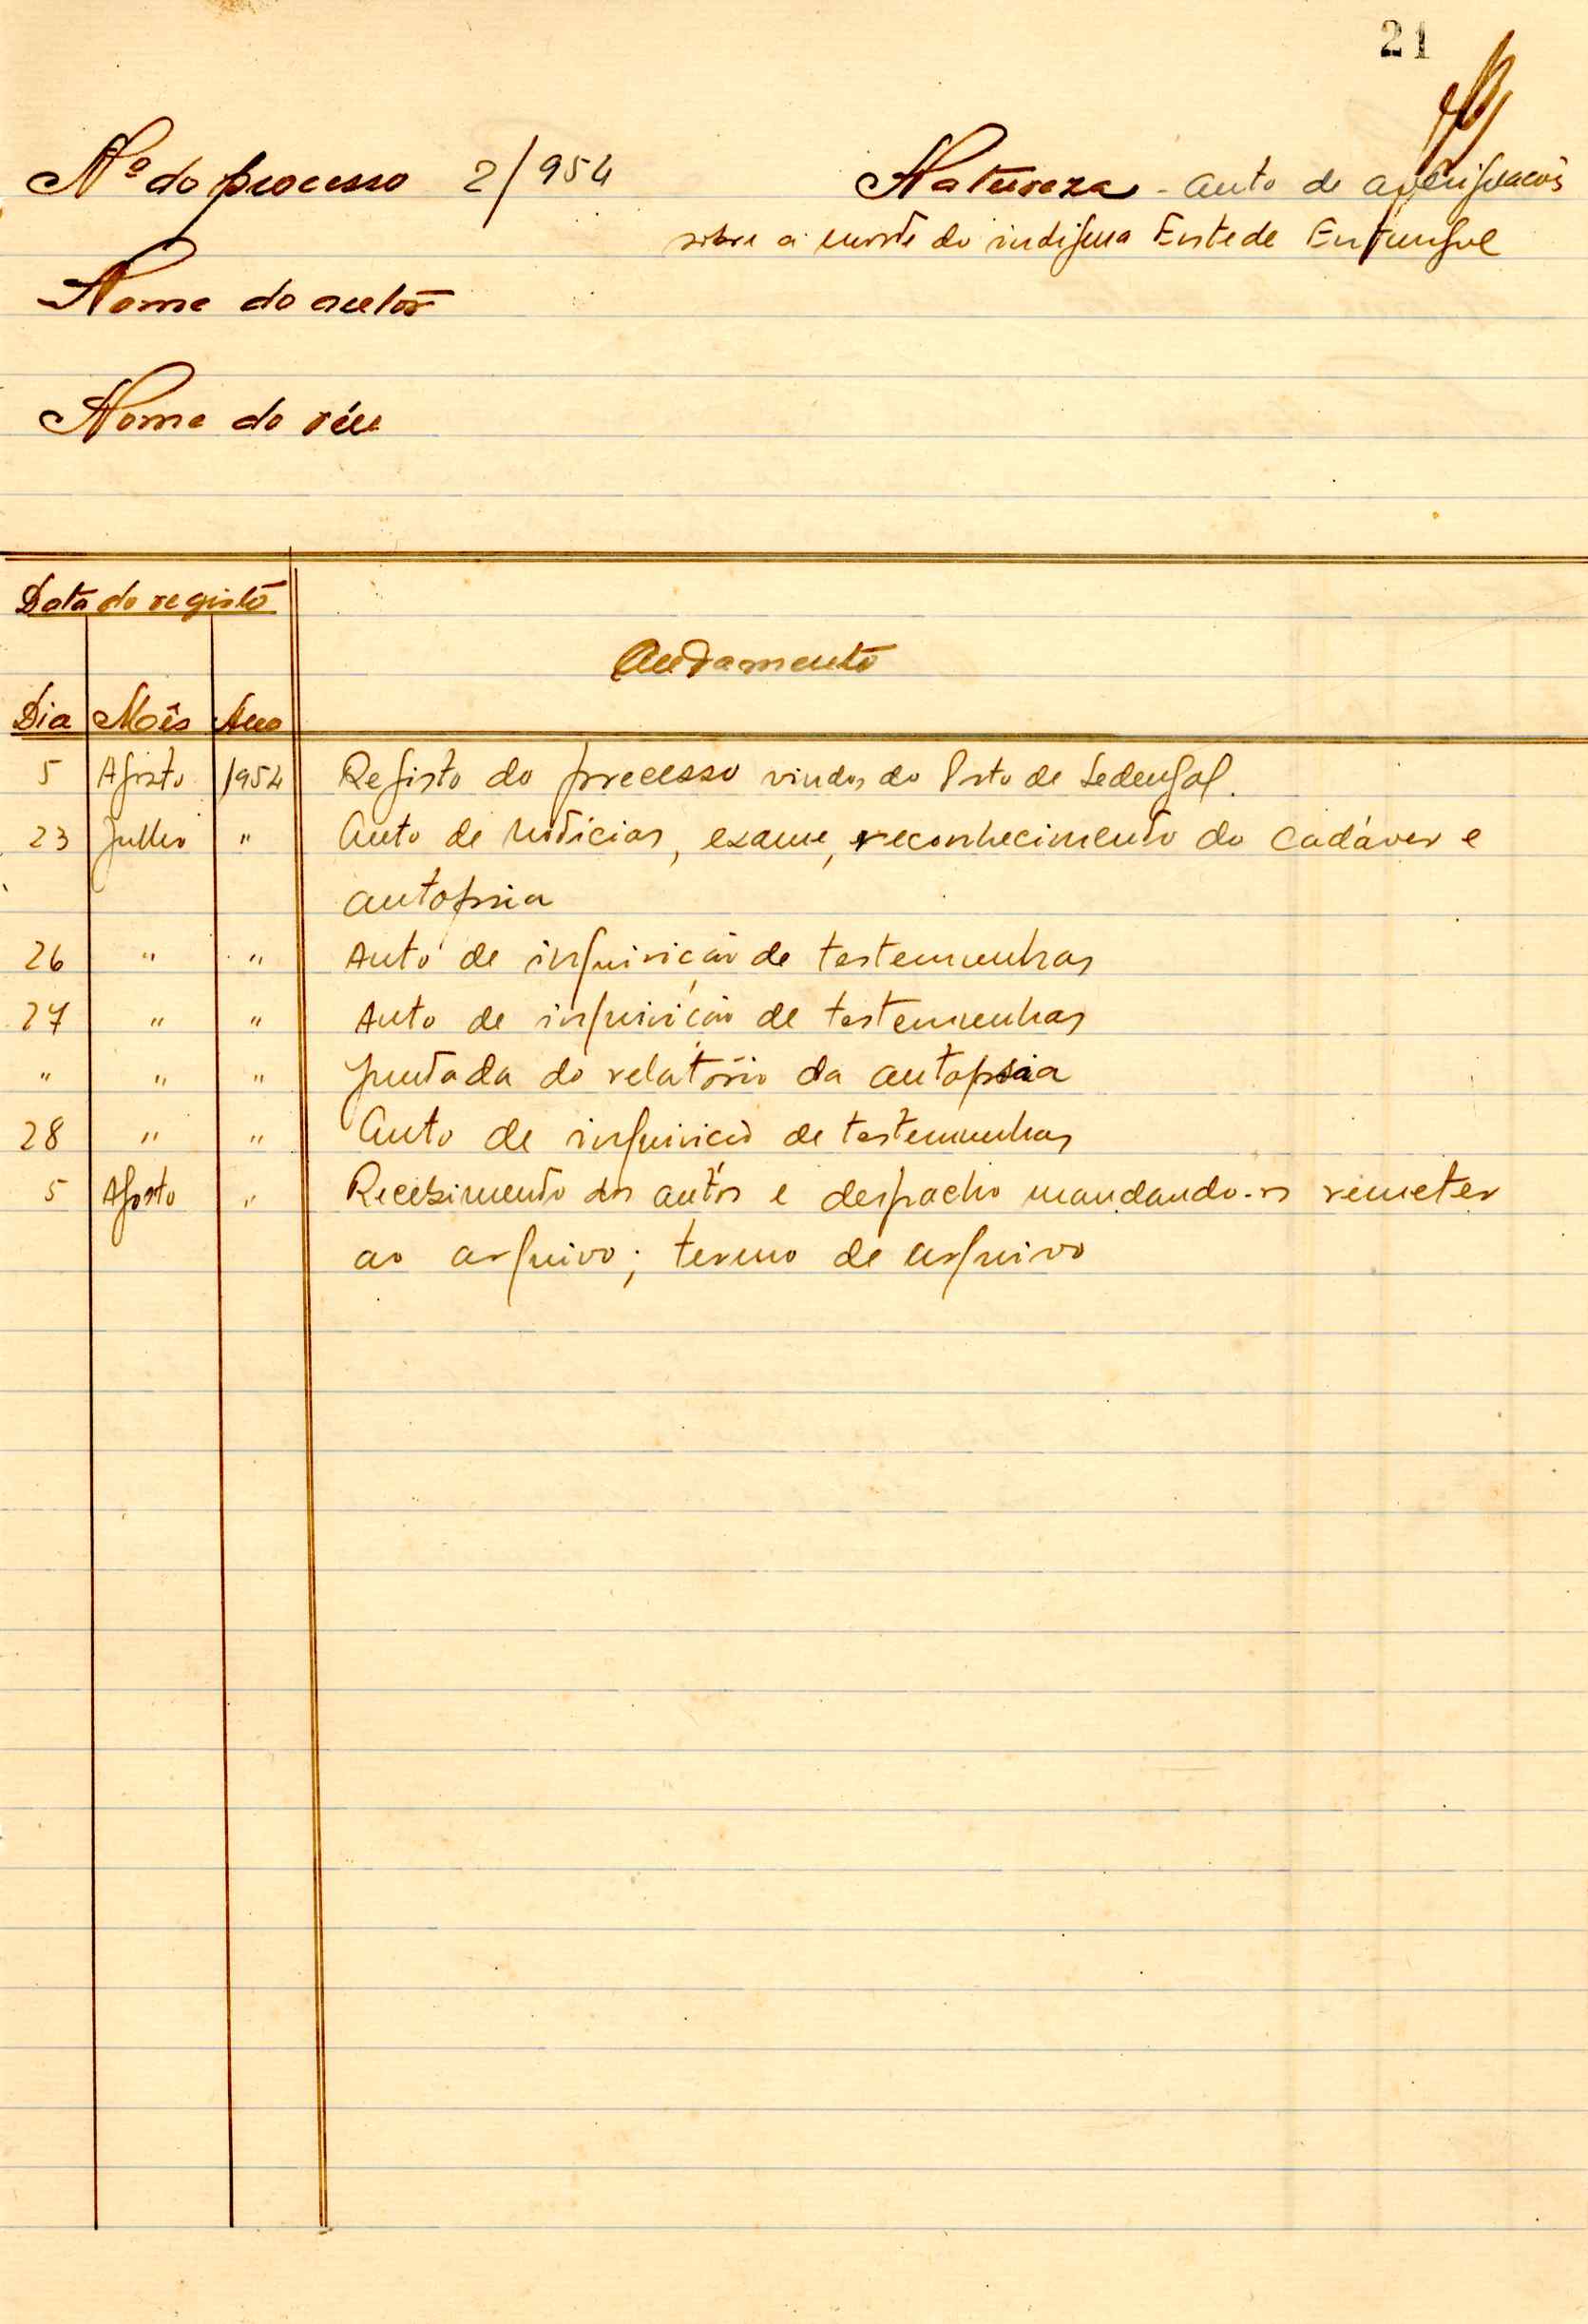 21
Nº do processo 2/954 Natureza - Auto de averiguação
sobre a morte do indígena Entede Entungul
Nome do autor
Nome do réu
Data do registo
Andamento
Dia Mês Ano
5 Agosto 1954 Registo do processo vindo do Posto de Sedengal.
23 Julho " Auto de notícias, exame, reconhecimento do cadáver e
autopsia
26 " " Auto de inquirição de testemunhas
27 " " Auto de inquirição de testemunhas
" " " Juntada do relatório da autopsia
28 " " Auto de inquirição de testemunhas
5 Agosto " Recebimento dos autos e despacho mandando-os remeter
ao arquivo; termo de arquivo